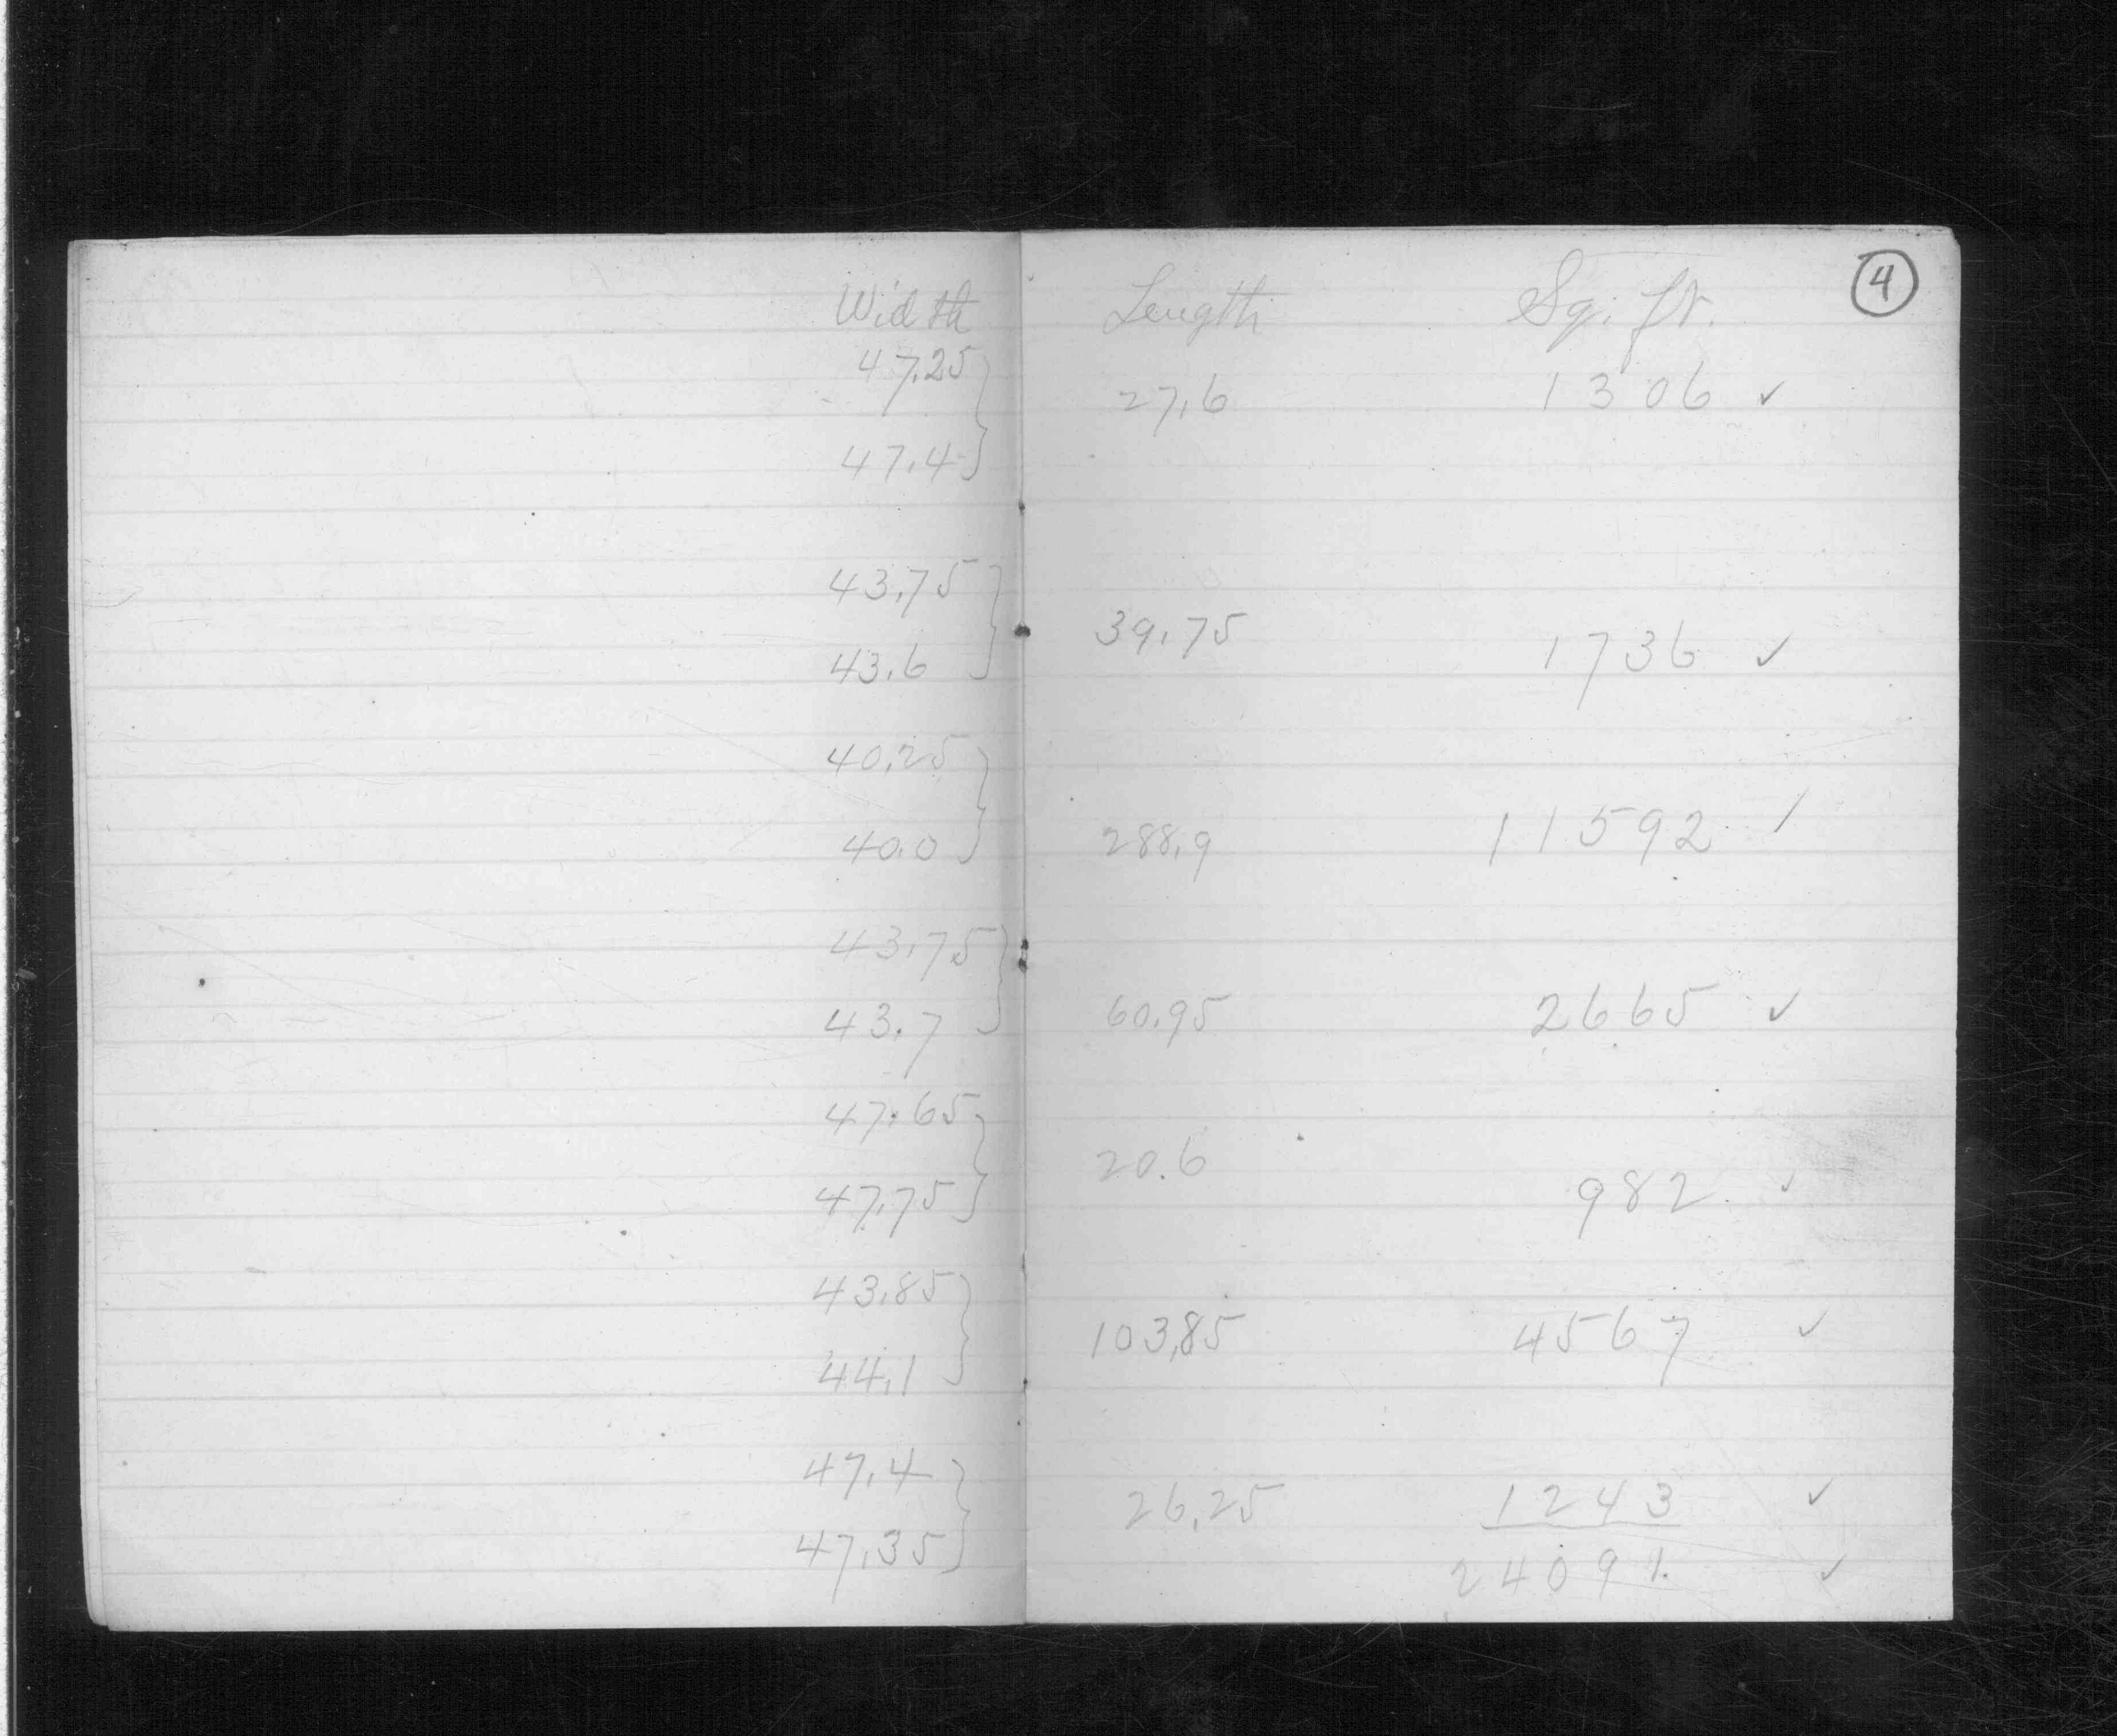 Width Length Sq. ft. 4
47.25
27.6 1306 ✓
47.4
43.75
39.75 1736 ✓
43.6
40.25
288.9 11592 ✓
40.0
43.75
60.95 2665 ✓
43.7
47.65
20.6 982 ✓
47.75
43.85
103.85 4567 ✓
44.1
47.4
26.25 1243 ✓
47.35
24091 ✓